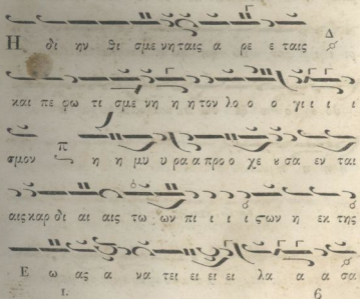 Η δι ην θι σμε νη ταις α ρε ε ταις Δ
και πε φω τι σμε νη η η τον λο ο ο γι ι ι ι
σμον π η η μυ υ ρα α προ ο χε ȣ σα εν ται
αις καρ δι αι αις τω ων πι ι ι ι ςων η εκ της
Ε ω ας α να τει ει ει ει λα α α σα
ι. 6